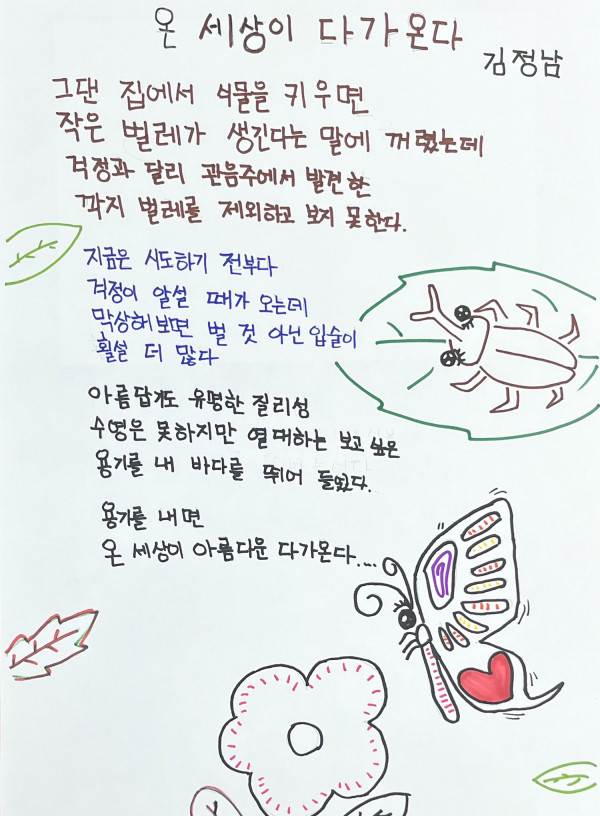 온 세상이 다가온다
김정남
그댄 집에서 식물을 키우면
작은 벌레가 생긴다는 말에 꺼렸는데
걱정과 달리 관음주에서 발견한
깍지 벌레를 제외하고 보지 못한다.
지금은 시도하기 전부다
걱정이 앞설 때가 오는데
막상해보면 별 것 아닌 입술이
훨설 더 많다
아름답게도 유명한 질리섬
수영은 못하지만 열대하는 보고 싶은
용기를 내 바다를 뛰어 들었다.
용기를 내면
온 세상이 아름다운 다가온다....